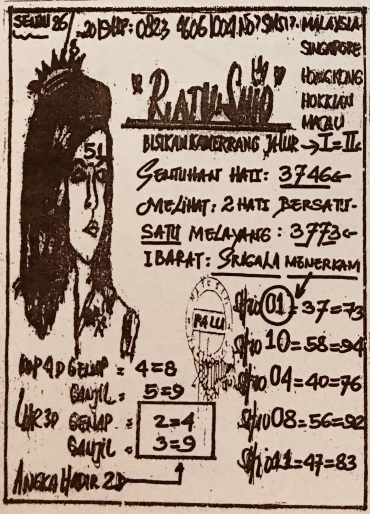 SENIN 26
2019 HP: 0823 4606 1001. NO? SUSTI?. MALAYSIA
SINGAPORE
HONGKONG
HOKKIAN
MACAU
"RATU SHIO"
BISIKAN KAWERRANG JALUR → I = II
51
SENTUHAN HATI: 3746
MELIHAT: 2 HATI BERSATU.
SATU MELAYANG: 3773
IBARAT: SRIGALA MENERKAM
SHIO 01 = 37 = 73
PALU
SHIO 10 = 58 = 94
SHIO 04 = 40 = 76
SHIO 08 = 56 = 92
SHIO 11 = 47 = 83
4D GENAP = 4 = 8
GANJIL = 5 = 9
3D GENAP = 2 = 4
GANJIL = 3 = 9
ANGKA HADIR 2D